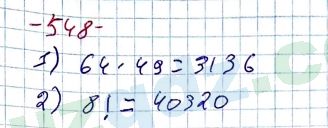 -548-
1) 64 · 49 = 3136
2) 8! = 40320